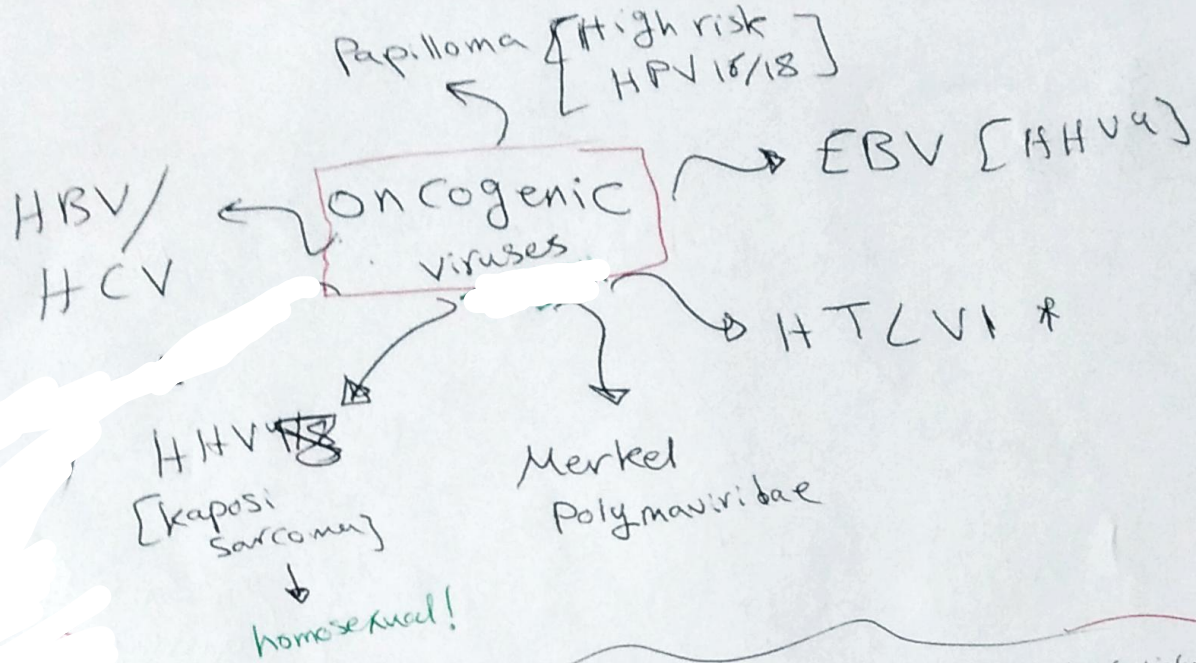 Papilloma [High risk
HPV 16/18]
EBV [HHV4]
HBV/
HCV
oncogenic
viruses
HTLV1 *
HHV 8
[Kaposi
sarcoma]
homosexual!
Merkel
Polymaviridae